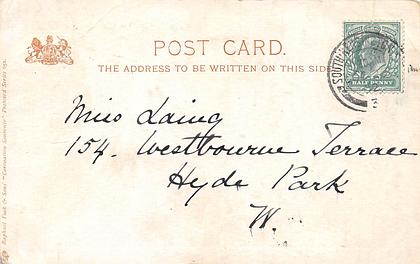 POST CARD.
THE ADDRESS TO BE WRITTEN ON THIS SIDE
HALF PENNY
Miss Laing
154. Westbourne Terrace
Hyde Park
W.
Raphael Tuck & Sons' "Coronation Souvenir" Postcard Series